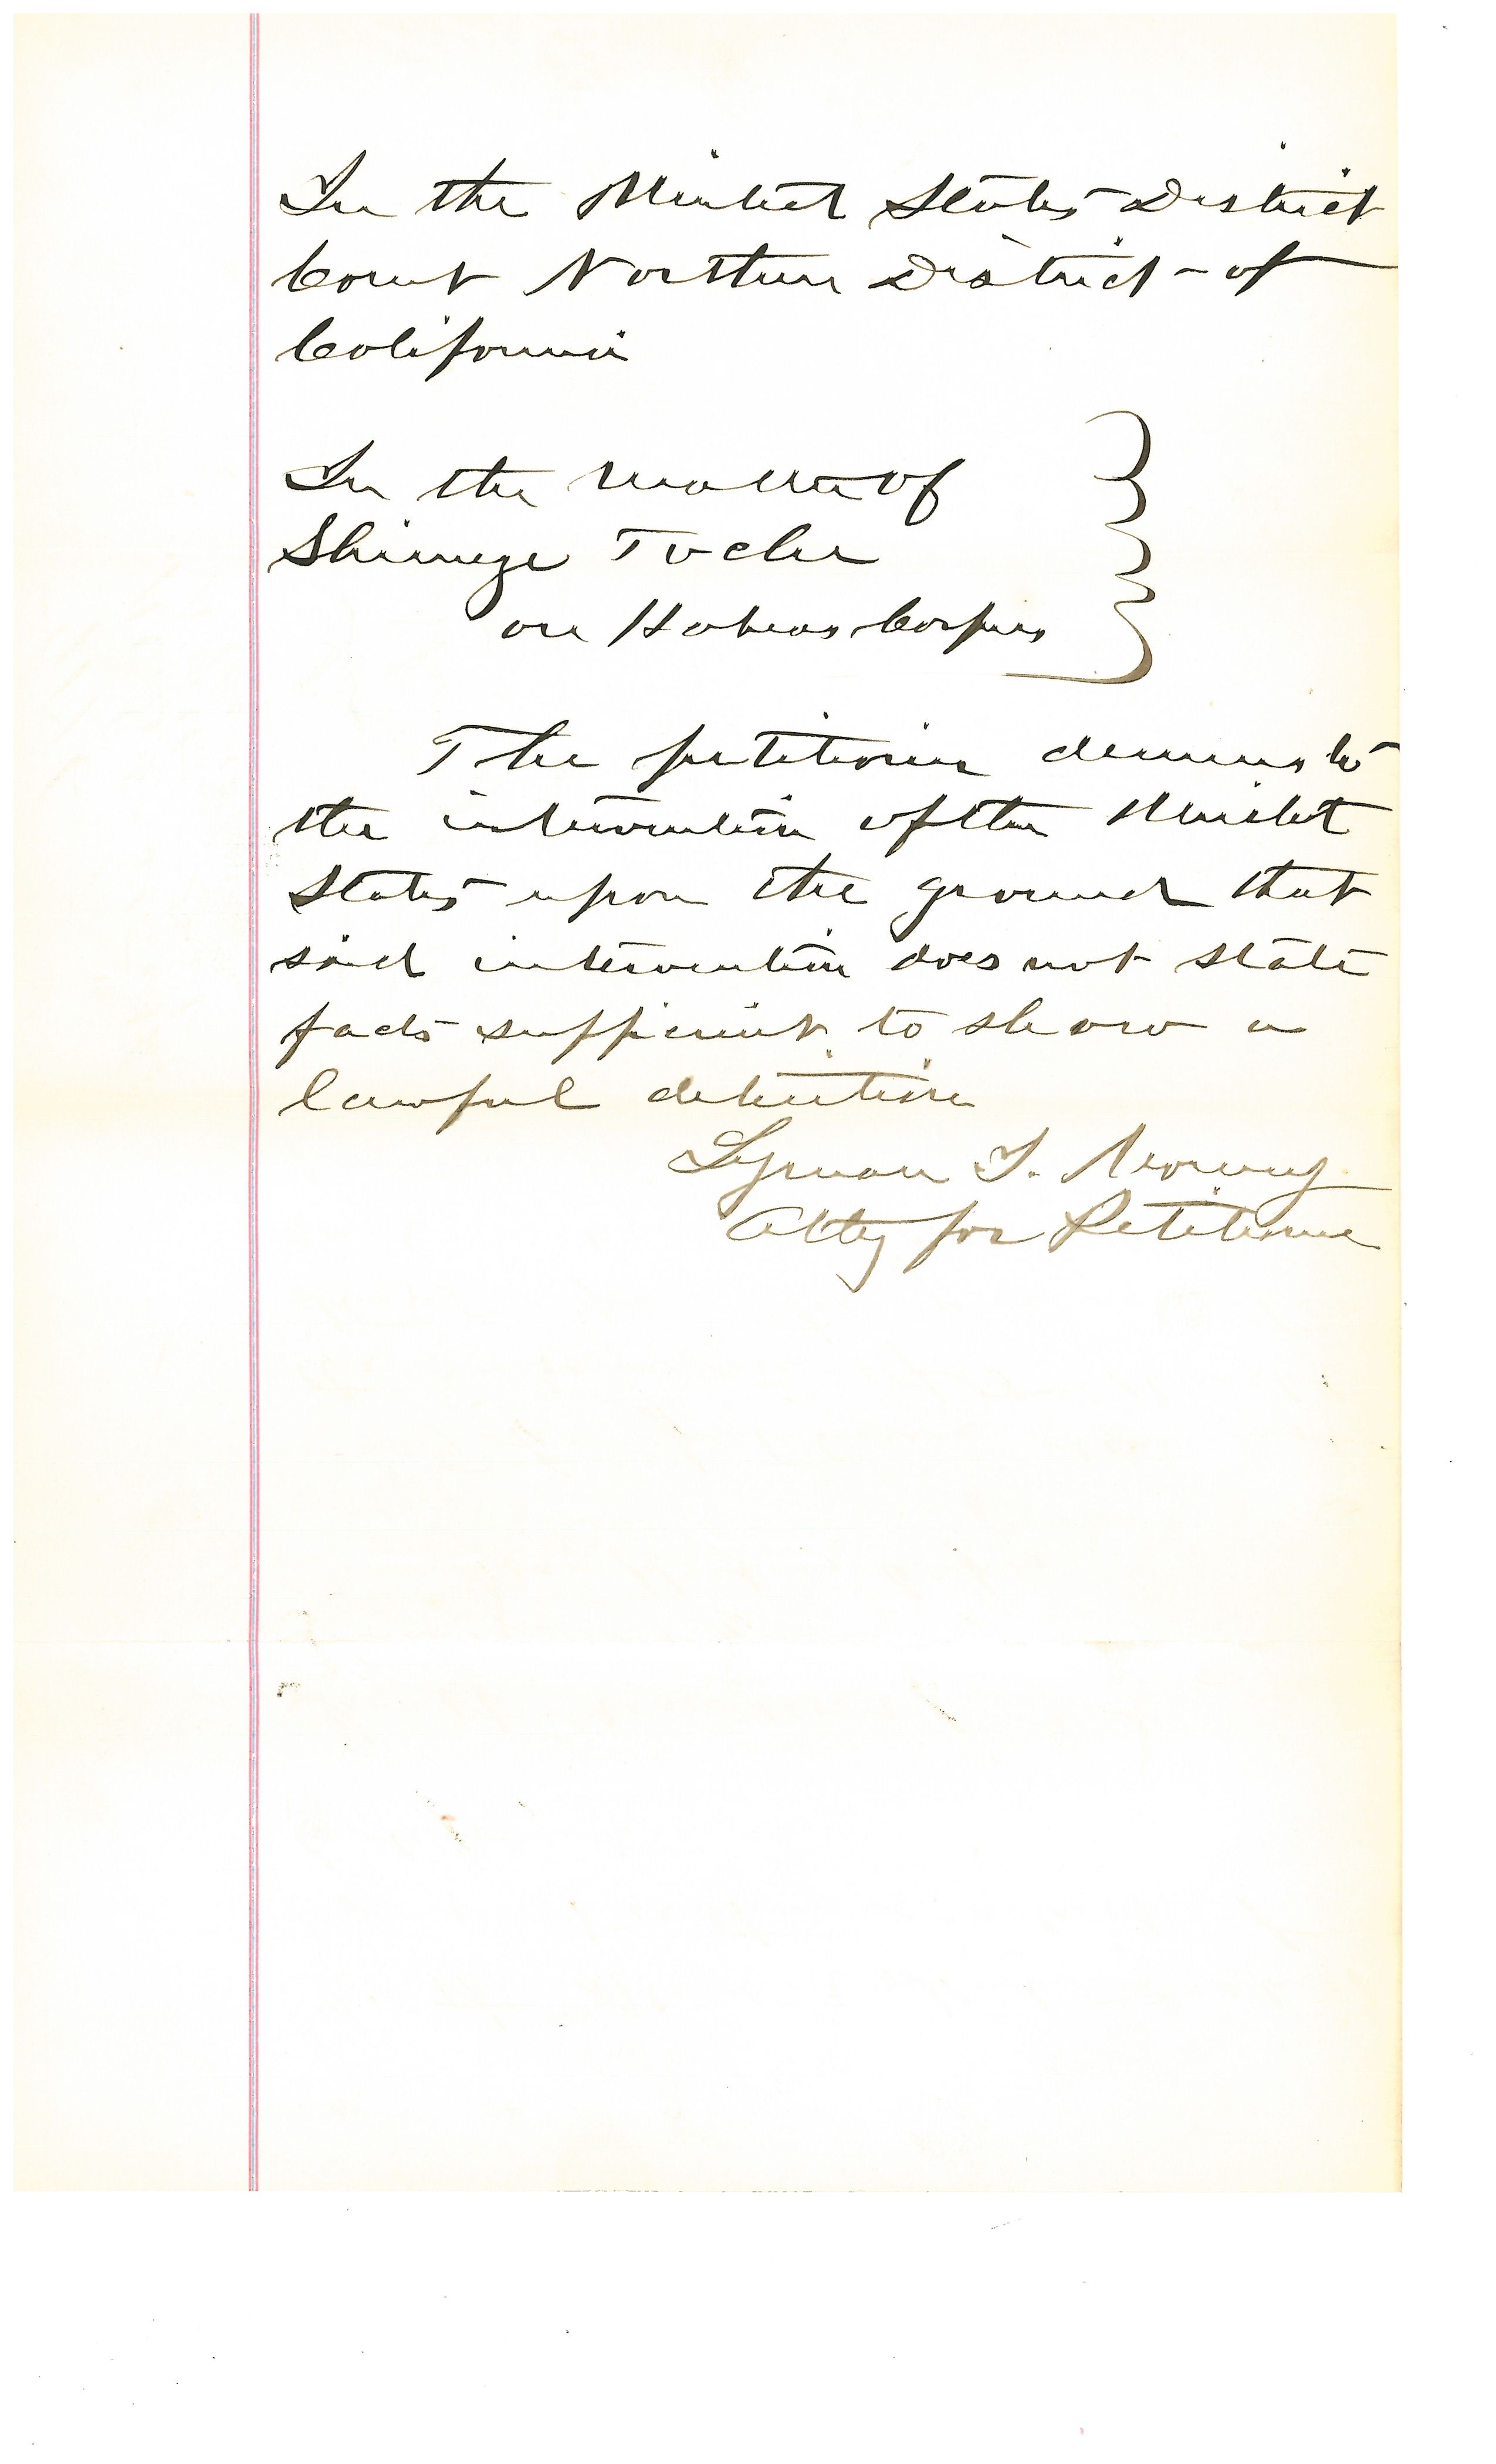 In the United States District
Court Northern District of
California
In the matter of
on Habeas Corpus
The petitioner demurs to
the intervention of the United
States upon the ground that
said intervention does not state
facts sufficient to show a
lawful detention
Lyman I. Mowry
Atty for Petitioner